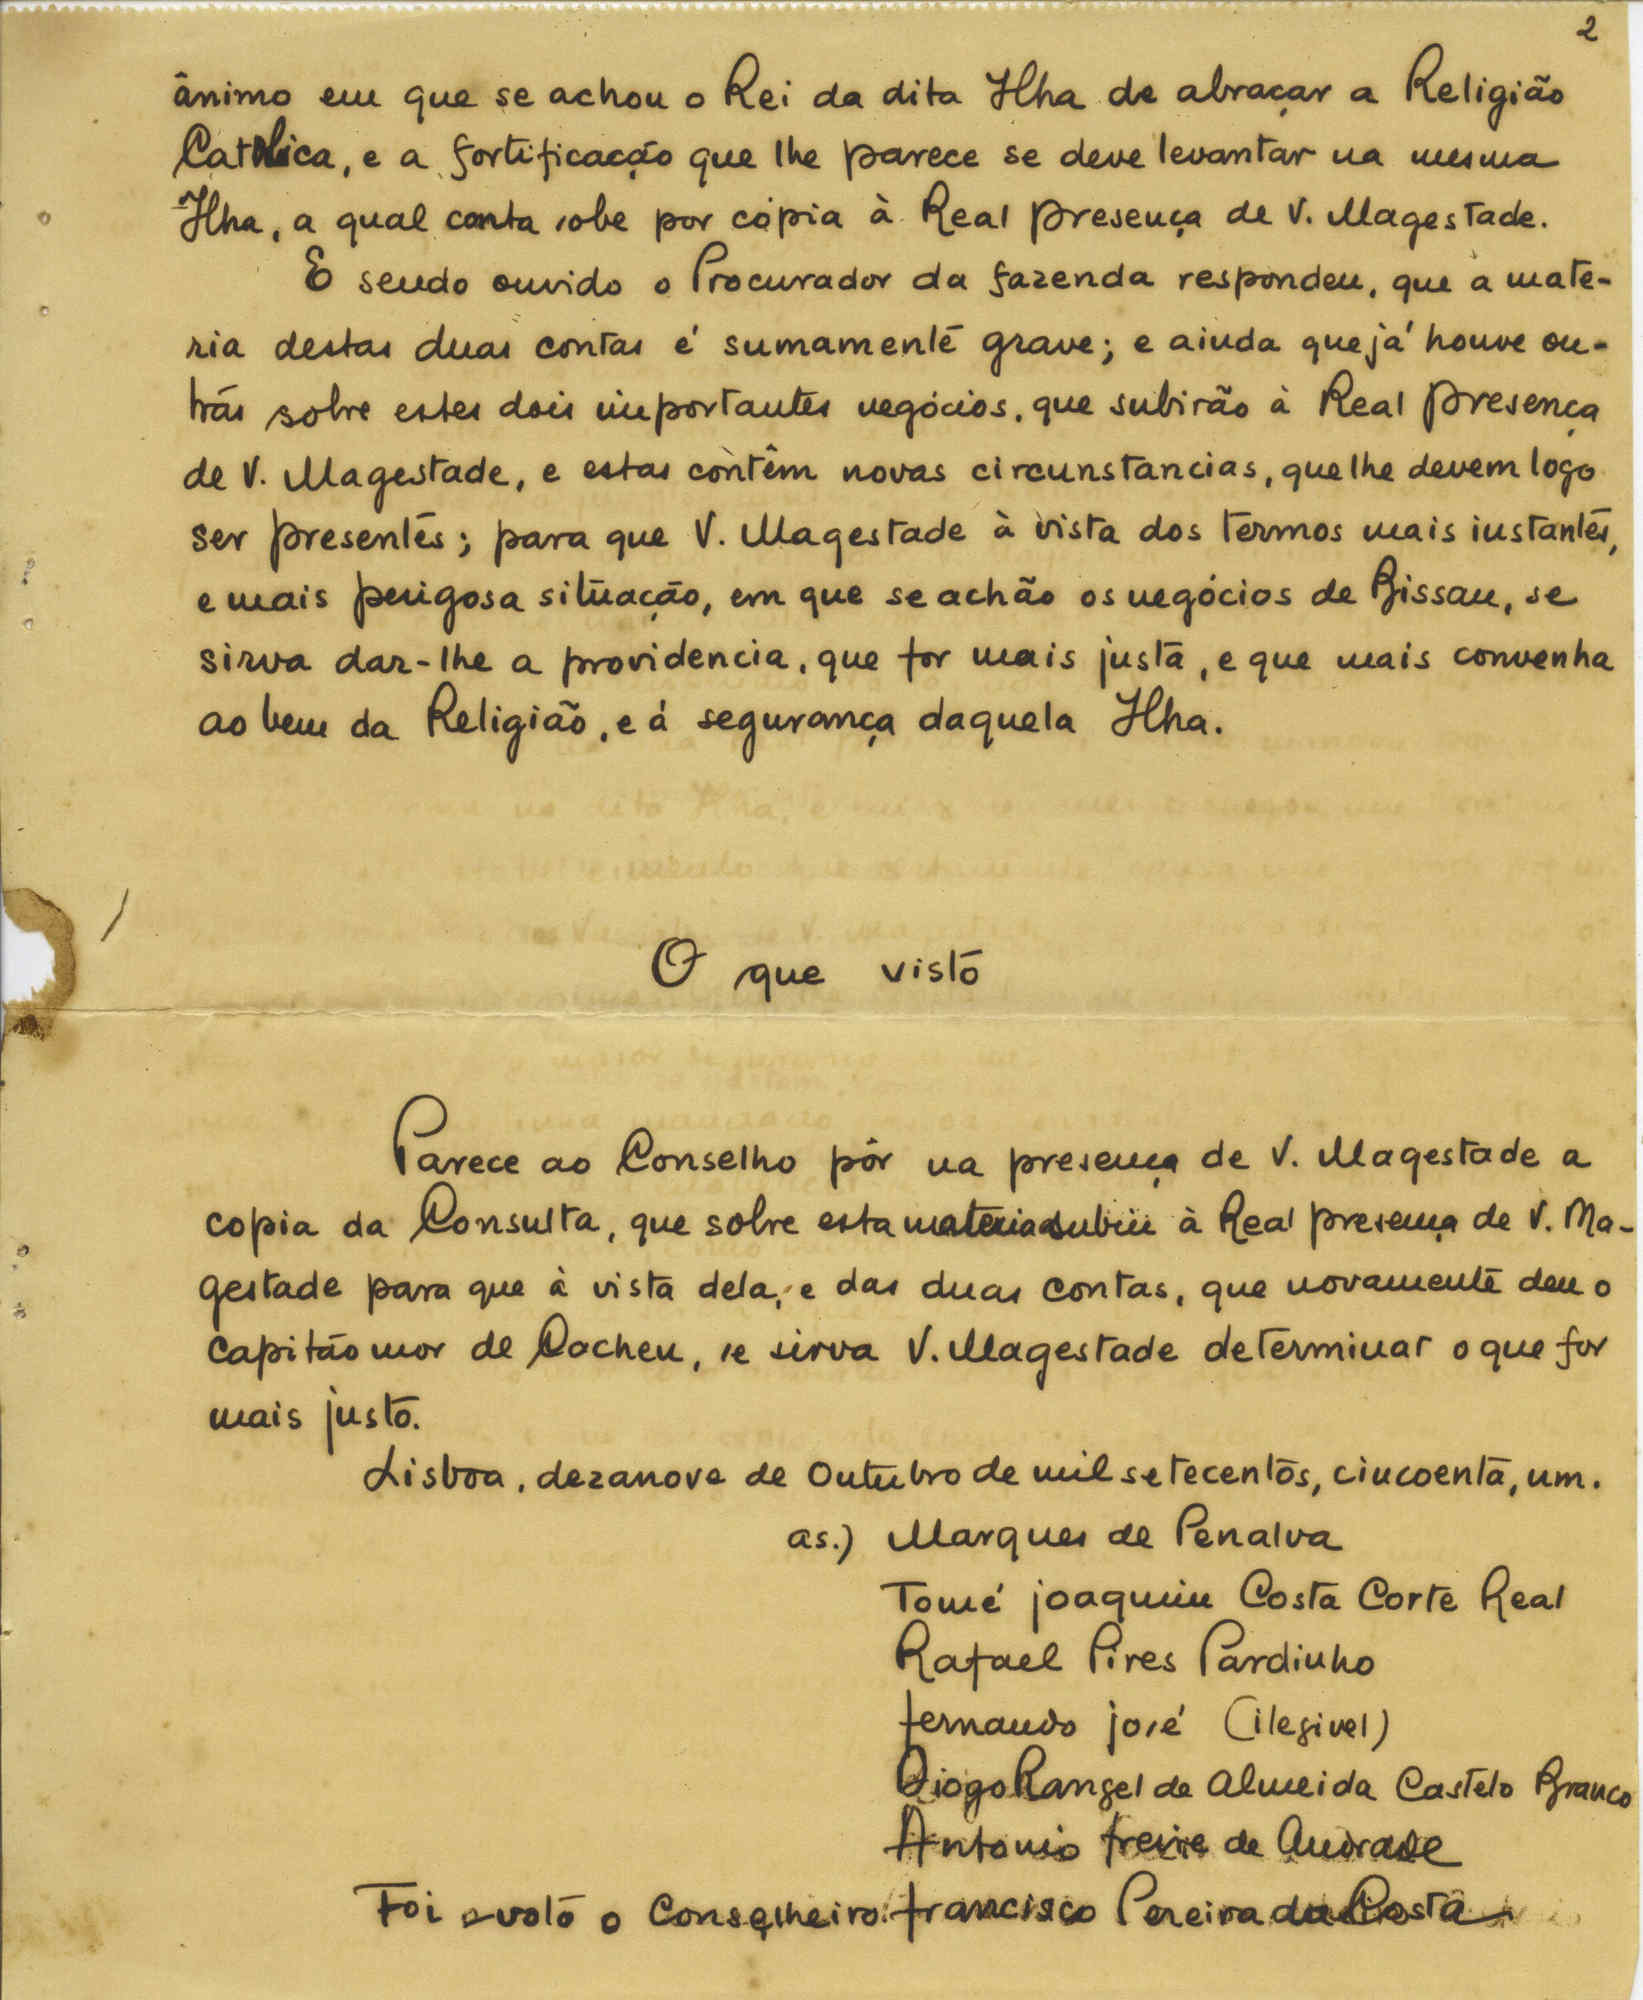 2
ânimo em que se achou o Rei da dita Ilha de abraçar a Religião
Católica, e a fortificação que lhe parece se deve levantar na mesma
Ilha, a qual conta sobe por cópia à Real presença de V. Magestade.
E sendo ouvido o Procurador da fazenda respondeu, que a mate-
ria destas duas contas é sumamente grave; e ainda que já houve ou-
tras sobre estes dois importantes negócios, que subirão à Real presença
de V. Magestade, e estas contêm novas circunstancias, que lhe devem logo
ser presentes; para que V. Magestade à vista dos termos mais instantes,
e mais perigosa situação, em que se achão os negócios de Bissau, se
sirva dar-lhe a providencia, que for mais justa, e que mais convenha
ao bem da Religião, e á segurança daquela Ilha.
O que visto
Parece ao Conselho pôr na presença de V. Magestade a
copia da Consulta, que sobre esta materia subiu à Real presença de V. Ma-
gestade para que à vista dela, e das duas contas, que novamente deu o
capitão mor de Cacheu, se sirva V. Magestade determinar o que for
mais justo.
Lisboa, dezanove de Outubro de mil setecentos, cincoenta, um.
as.) Marques de Penalva
Tomé joaquim Costa Corte Real
Rafael Pires Pardinho
fernando josé (ilegivel)
Diogo Rangel de Almeida Castelo Branco
Antonio freire de Andrade
Foi voto o Conselheiro francisco Pereira da Costa